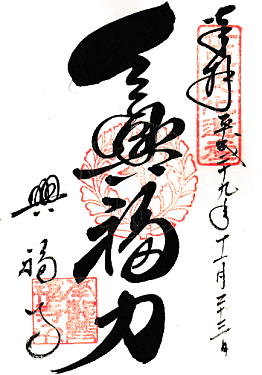 奉拝 平成二十九年十一月二十三日
令興福力
興福寺